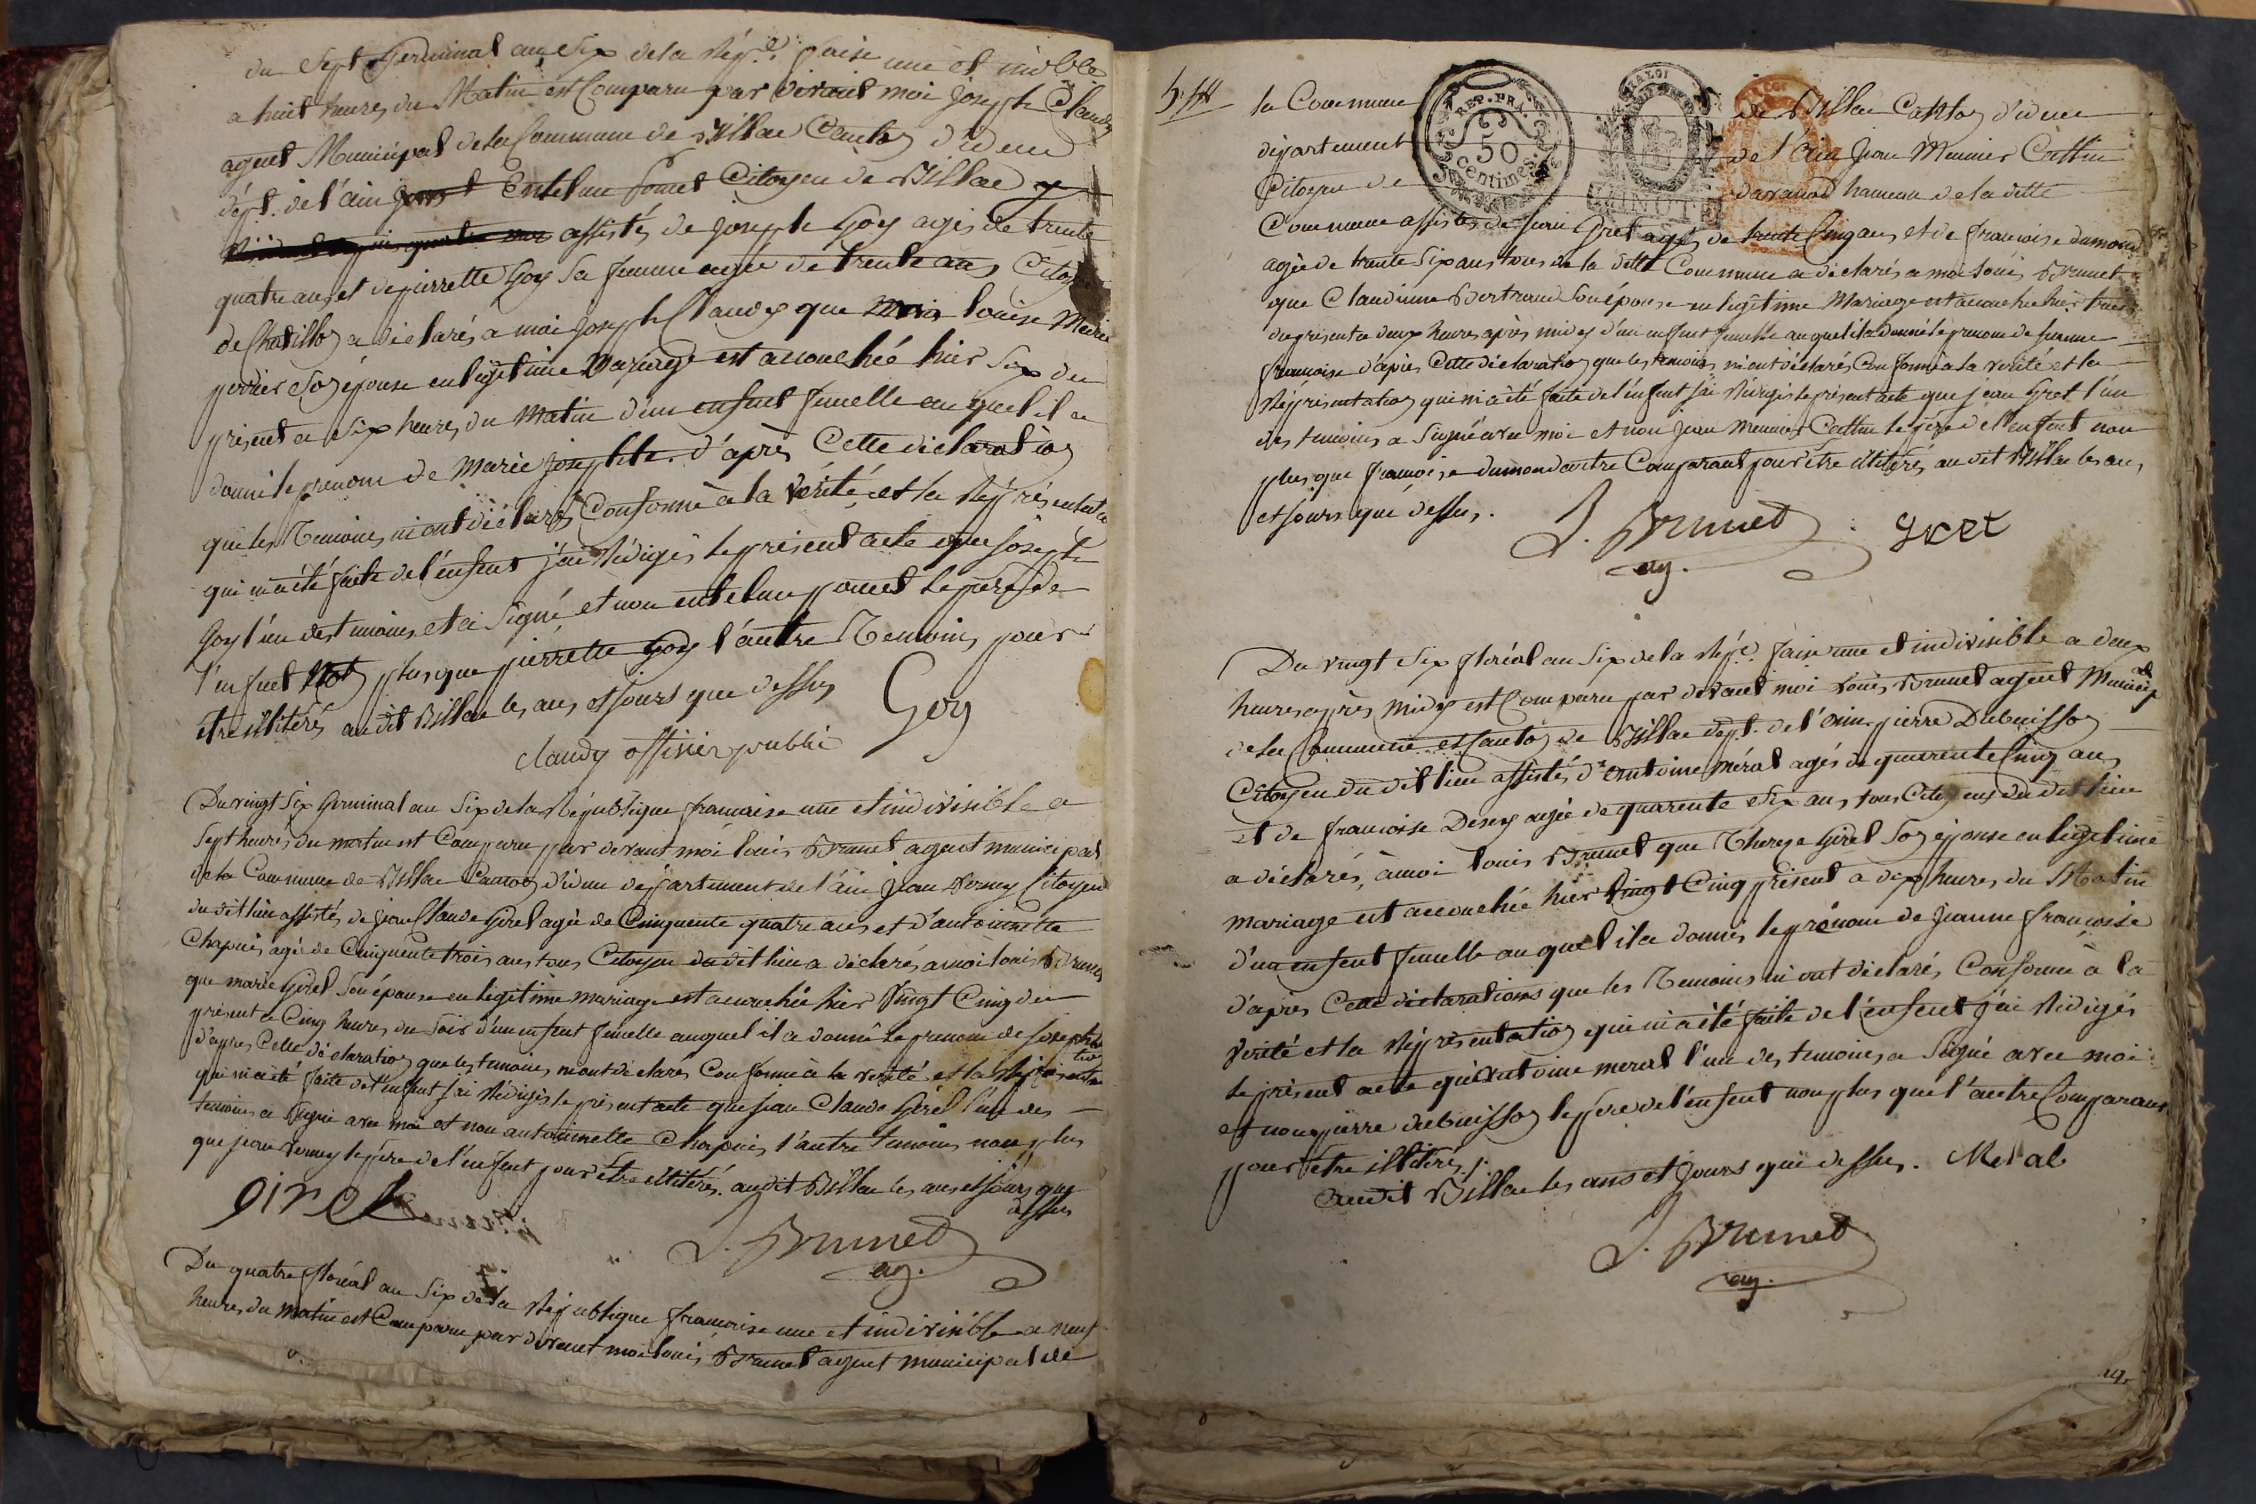 du Sept Germinal an Six de la Rép.e f.aise une et indble
a huit heures du Matin est Comparu par devant moi Joseph Claudy
agent Municipal de la Commune de Billac Canton d'
dép.t de l'ain Entelme pomet Citoyen de Billac
assistés de joseph Goy agés de trente
quatre ans et de pierrette Goy Sa femme agée de trente ans Citoy
de Chatillon a déclarés a moi joseph Claudy que louise Marie
perrier Son épouse en légitime Mariage est accouchée hier Six du
présent a Six heures du Matin d'un enfent femelle au quel il a
donné le prenom de Marie josephte. d'après Cette déclaration
que les Temoins m'ont déclarés Conforme à la vérité et la Réprésentation
qui m'a été faite de l'enfent j'ai Rédigés le présent acte que joseph
Goy l'un des temoins et a Signé et non entelme pomet le père de
l'enfent Non plus que pierrette Goy l'autre Temoins pour
etre illitérés au dit Billac les ans et jours que dessus
Goy
claudy offisier public
Du vingt Six Germinal an Six de la République francaise une et indivisible a
Sept heures du matin est Comparu par devant moi louis Brunet agent municipal
de la Commune de Billac Canton d' département de l'ain jean Verney Citoyen
du dit lieu assistés de jean Claude Girel agée de Cinquente quatre ans et d'antoinette
Chapuis agée de Cinquente trois ans tous Citoyen du dit lieu a déclarés a moi louis Brunet
que marie Girel Son épouse en légitime mariage est accouchée hier Vingt Cinq du
présent a Cinq heures du Soir d'un enfent femelle auquel il a donné le prenom de josephte
d'apres Cette déclaration que les temoins m'ont déclarés Conforme à la verité et la Représentation
qui m'a été faite de l'enfent j'ai Rédigés le présent acte que jean Claude Girel l'un des
temoins a Signé avec moi et non antoinnette Chapuis l'autre temoins non plus
que jean Verney le père de l'enfent pour être illitérés. au dit Billac les ans et jours que
dessus
girel
J. Brunet
ag.
Du quatre floréal an Six de la République francaise une et indivisible a neuf
heures du matin est Comparu par devant moi louis Brunet agent municipal de
la Commune de Billac Canton d'
département de l'ain jean Meunier Cattin
Citoyen de d'arvanod hameau de la ditte
Commune assistés de jean Gret agés de trente Cinq ans et de francoise dumond
agée de trente Six ans tous de la ditte Commune a déclarés a moi louis Brunet
que Claudinne Bertrand Son épouse en légitime Mariage est accouchée hier trois
du présent a deux heures après midy d'un enfent femelle au quel il a donné le prenom de jeanne
francoise d'après Cette déclaration que les temoins m'ont déclarés Conforme à la verité et la
Réprésentation qui m'a été faite de l'enfent j'ai Rédigés le présent acte que jean Gret l'un
des temoins a Signé avec moi et non jean Meunier Cattin le père de l'enfent non
plus que francoise dumond autre Comparant pour être illitérés, au dit Billac les ans
et jours que dessus.
J. Brunet
ag.
gret
REP. FRA.
50
Centimes.
MINUTE
Du vingt Six floréal an Six de la Rép.e f.aise une et indivisible a deux
heures après midy est Comparu par devant moi Louis Brunet agent Municipal
de la Commune et Canton de Billac dép.t de l'ain pierre Dubuisson
Citoyen du dit lieu assistés d'antoine méral agés de quarente Cinq ans
et de francoise Deney agée de quarente Six ans, tous Citoyens du dit lieu
a déclarés, à moi louis Brunet que Therese Girel Son épouse en légitime
mariage est accouchée hier Vingt Cinq présent a dix heures du Matin
d'un enfent femelle au quel il a donnés le prénom de jeanne francoise
d'après Cette déclarations que les Temoins m'ont déclarés, Conforme à la
Vérité et la Réprésentation qui m'a été faite de l'énfent j'ai Rédigés
le présent acte qu'antoine meral l'un des temoins a Signé avec moi
et non pierre dubuisson le père de l'enfent non plus que l'autre Comparant
pour être illitérés
audit Billac les ans et jours que dessus. Meral
J. Brunet
ag.